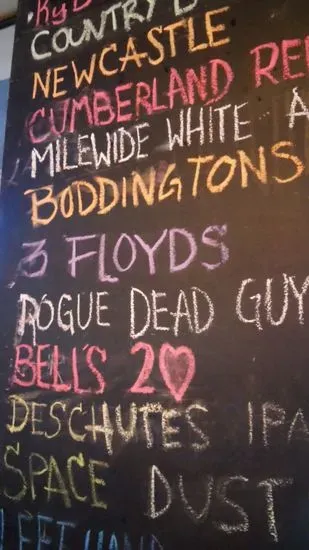 KyB
COUNTRY B
NEWCASTLE
CUMBERLAND RED
MILEWIDE WHITE A
BODDINGTONS
3 FLOYDS
ROGUE DEAD GUY
BELL'S 2♥
DESCHUTES IPA
SPACE DUST
LEFT HAND